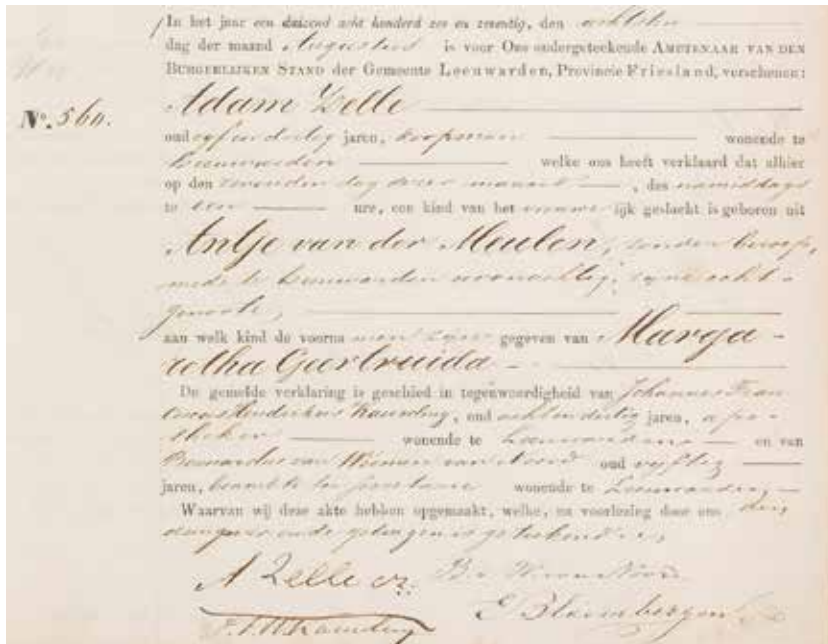 In het jaar een duizend acht honderd zes en zeventig, den achtsten
dag der maand Augustus is voor Ons ondergeteekende AMBTENAAR VAN DEN
BURGERLIJKEN STAND der Gemeente Leeuwarden, Provincie Friesland, verschenen:
Adam Zelle
No. 560.
oud vyfendertig jaren, koopman wonende te
Leeuwarden welke ons heeft verklaard dat alhier
op den zevenden dag dezer maand, des namiddags
te een ure, een kind van het vrouwelijk geslacht is geboren uit
Antje van der Meulen, zonder beroep,
mede te Leeuwarden woonachtig, zyne echt-
genoote,
aan welk kind de voornamen zyn gegeven van Marga-
retha Geertruida
De gemelde verklaring is geschied in tegenwoordigheid van Johannes Fran
Hendrikus Kamding, oud achtendertig jaren, apo-
theker wonende te Leeuwarden en van
Bernardus van Noord oud vyftig
jaren, wonende te Leeuwarden
Waarvan wij deze akte hebben opgemaakt, welke, na voorlezing door ons,
is geteekend
A Zelle cz. B. v. Noord
Bloembergen